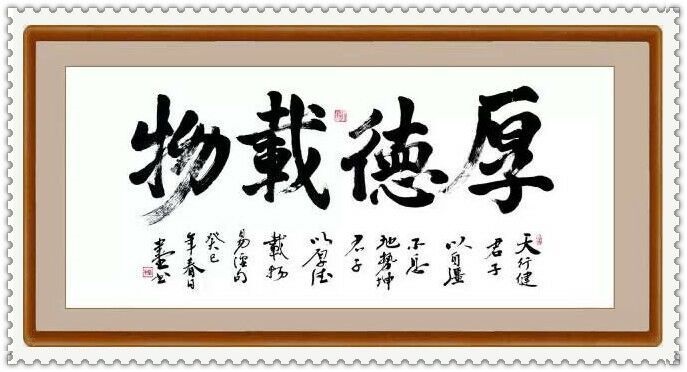 厚德載物
天行健
君子
以自彊
不息
地勢坤
君子
以厚德
載物
易經句
癸巳
年春日